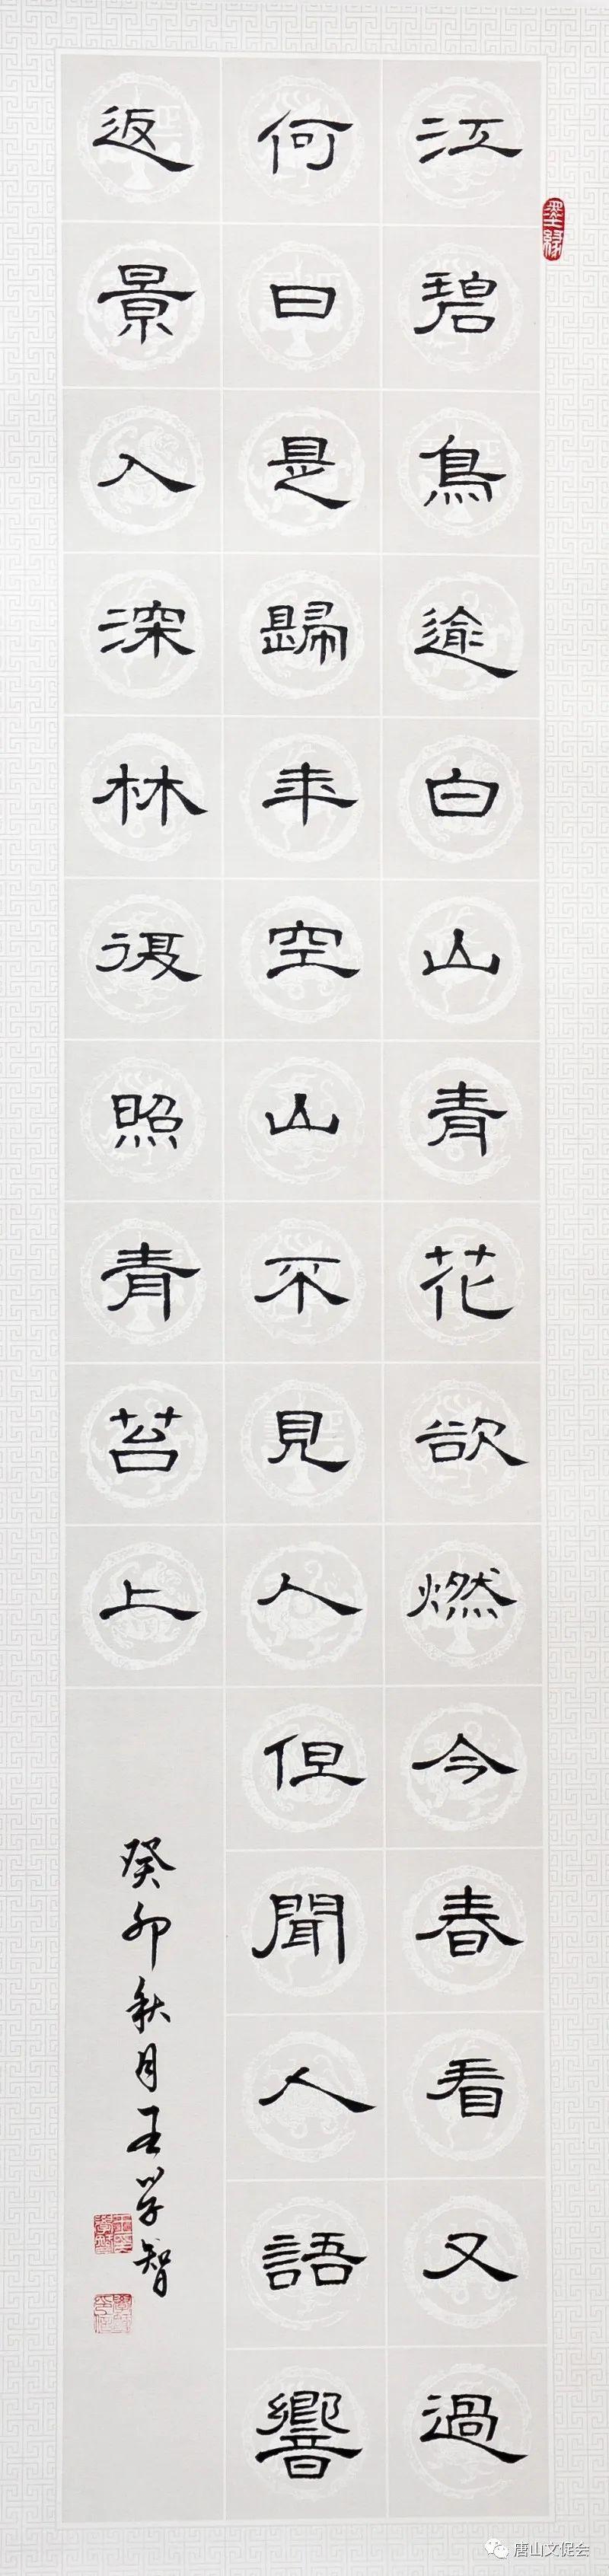 江碧鳥逾白山青花欲燃今春看又過
何日是歸年空山不見人但聞人語響
返景入深林復照青苔上
癸卯秋月王學智
墨緣
唐山文促会